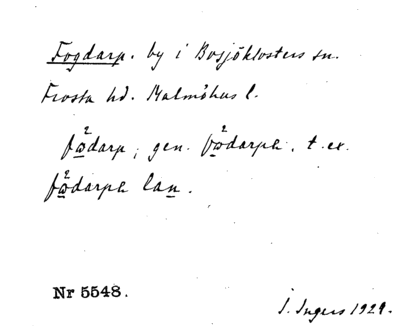 Fogdarp. by i Bosjöklosters sn.
Frosta hd. Malmöhus l.
fω²darp, gen. fω²darpa, t. ex.
fω²darpa lan.
Nr 5548.
I. Ingers 1929.